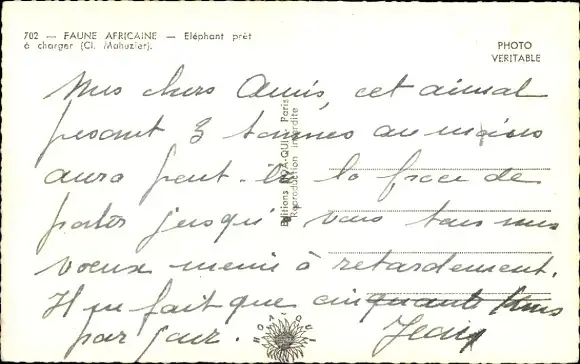 702 — FAUNE AFRICAINE — Eléphant prêt
à charger (Cl. Mahuzier).
PHOTO
VERITABLE
Mes chers Amis, cet animal
pesant 3 tonnes au moins
aura peut-être la force de
porter jusqu'à vous tous mes
voeux menis à retardement.
Il ne fait que cinquante kms
par jour. Jean
Editions HOA-QUI, Paris
Reproduction interdite
HOA-QUI